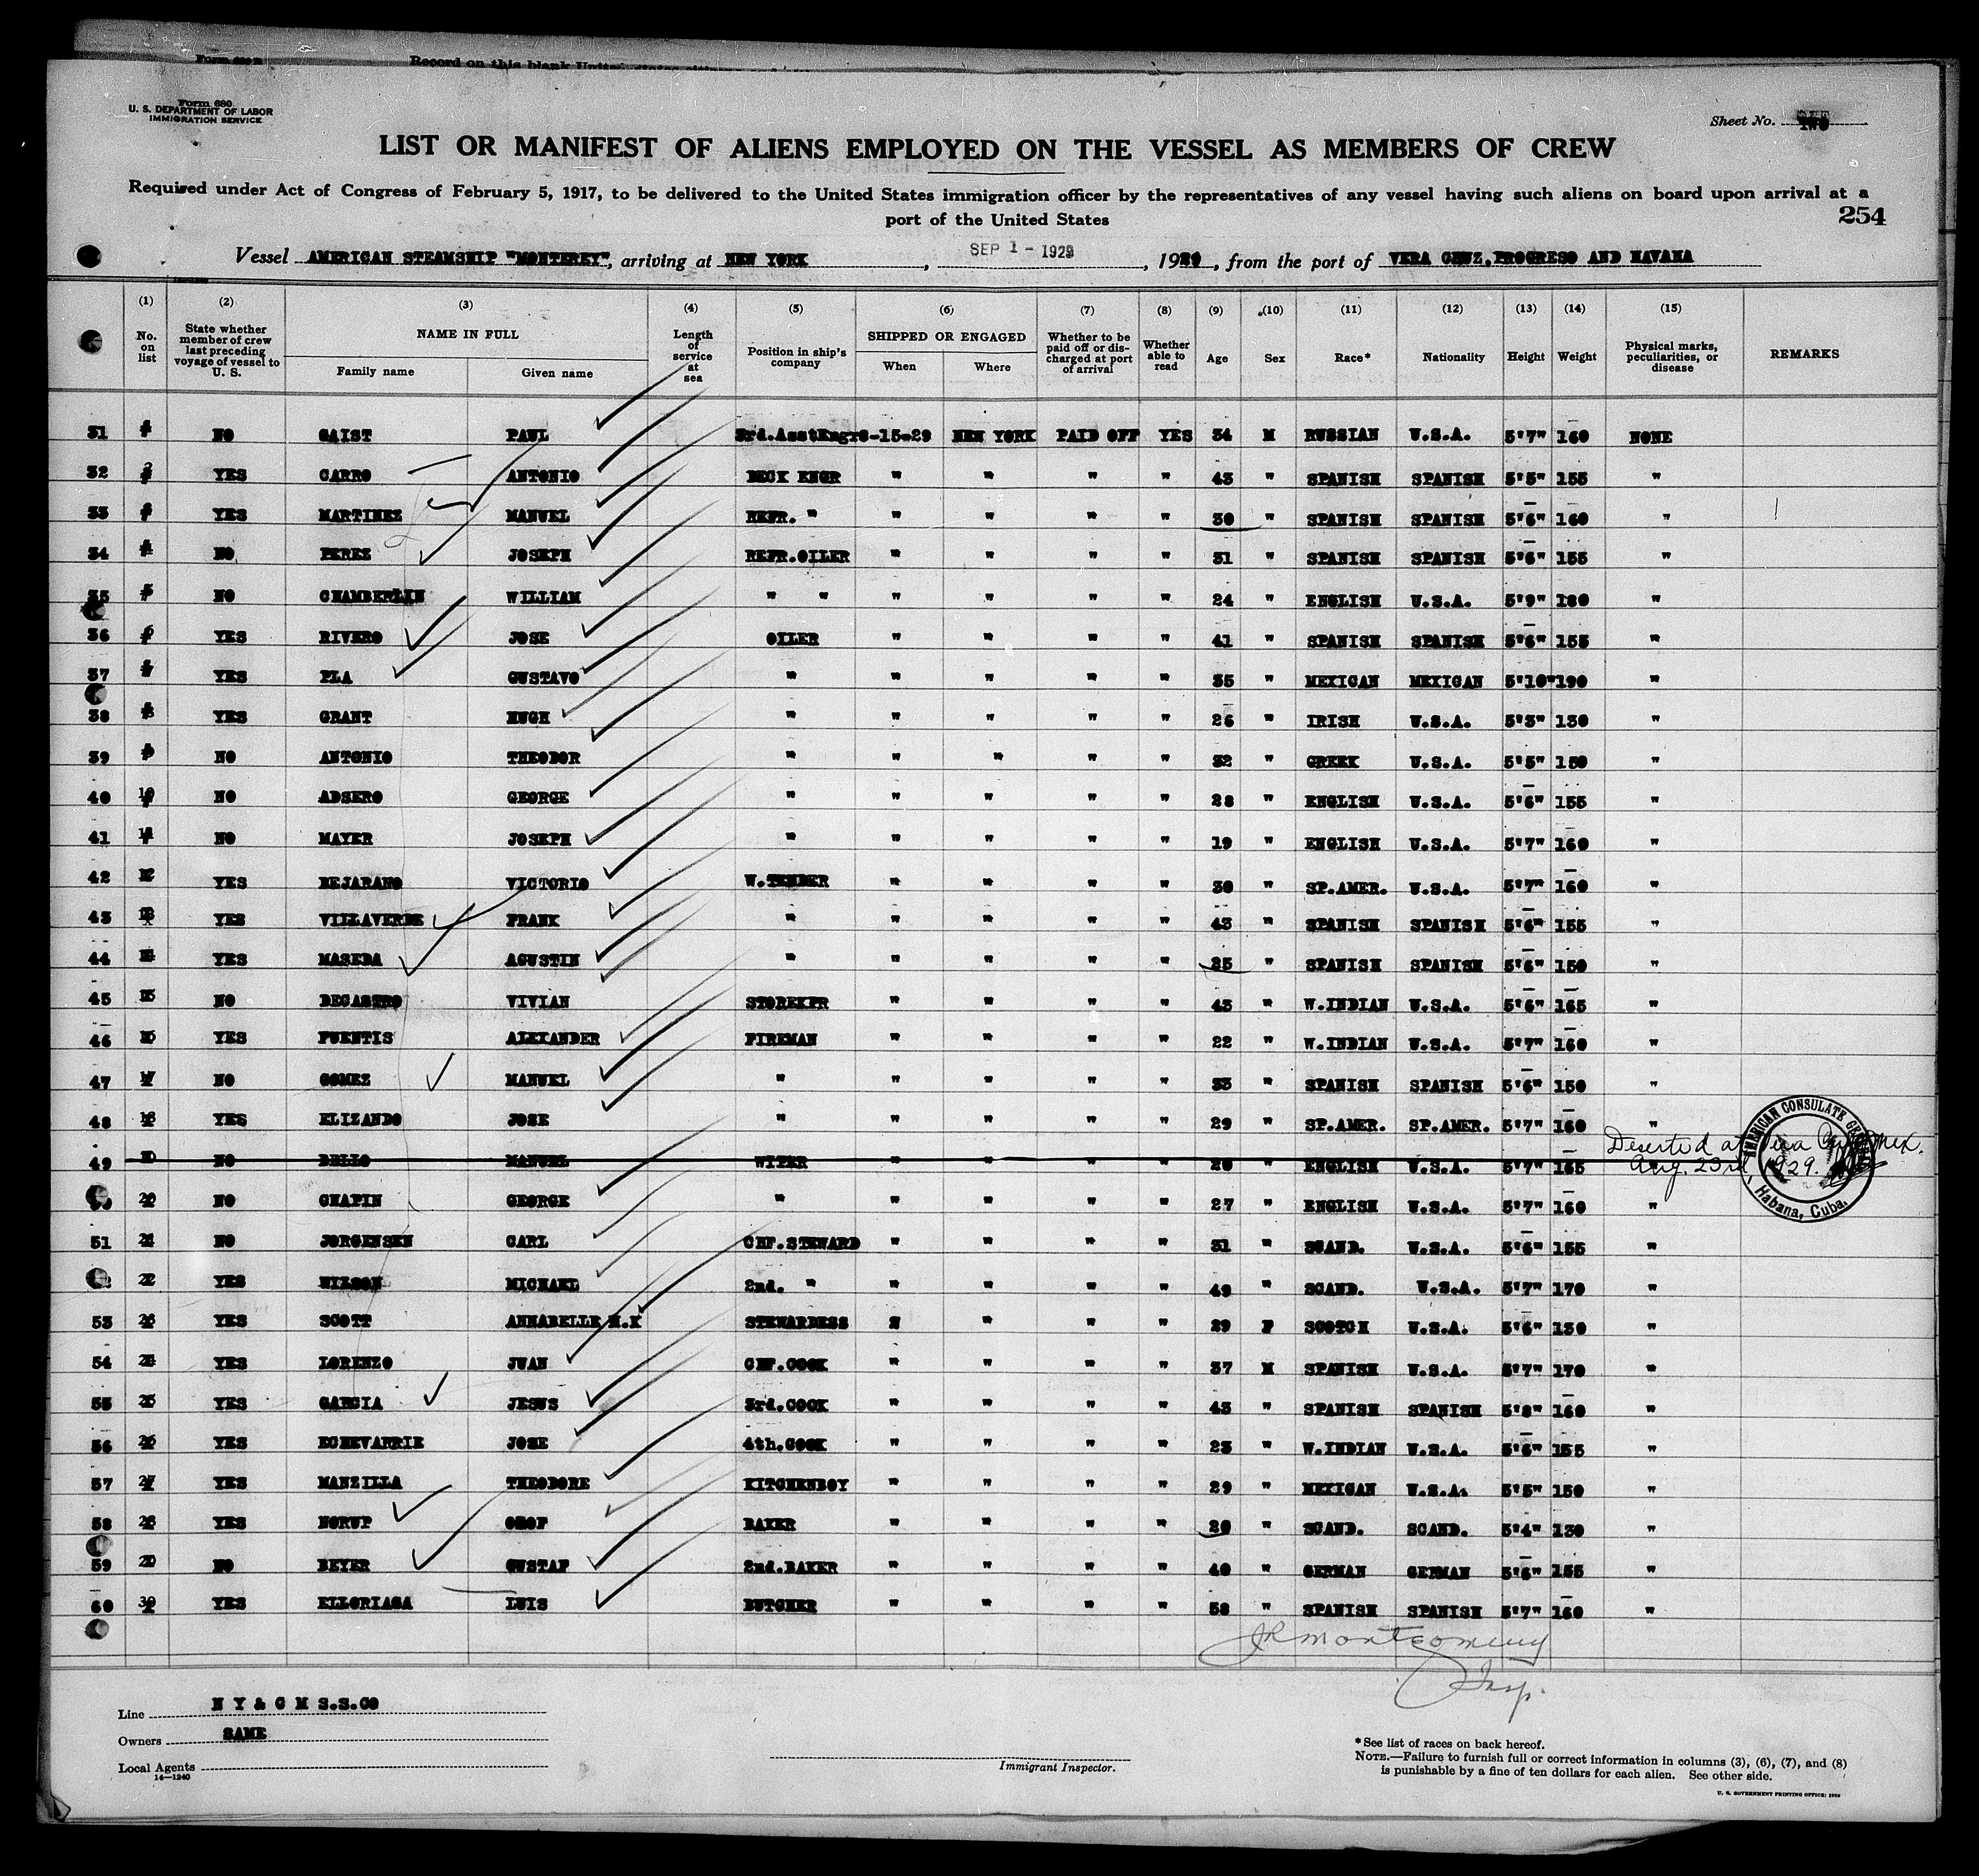 Form 680
U. S. DEPARTMENT OF LABOR
IMMIGRATION SERVICE
Sheet No.
LIST OR MANIFEST OF ALIENS EMPLOYED ON THE VESSEL AS MEMBERS OF CREW
Required under Act of Congress of February 5, 1917, to be delivered to the United States immigration officer by the representatives of any vessel having such aliens on board upon arrival at a
port of the United States
254
Vessel AMERICAN STEAMSHIP "MONTEREY", arriving at NEW YORK, SEP 1 - 1929, 1929, from the port of VERA CRUZ, PROGRESO AND HAVANA
(1) (2) (3) (4) (5) (6) (7) (8) (9) (10) (11) (12) (13) (14) (15)
No. on list State whether member of crew last preceding voyage of vessel to U. S. NAME IN FULL Family name Given name Length of service at sea Position in ship's company SHIPPED OR ENGAGED When Where Whether to be paid off or discharged at port of arrival Whether able to read Age Sex Race* Nationality Height Weight Physical marks, peculiarities, or disease REMARKS
31 1 NO GAIST PAUL 3rd.AsstEngr 8-15-29 NEW YORK PAID OFF YES 34 M RUSSIAN U.S.A. 5'7" 160 NONE
32 2 YES CARRO ANTONIO DECK ENGR " " " " 43 " SPANISH SPANISH 5'5" 155 "
33 3 YES MARTINEZ MANUEL REFR. " " " " " 30 " SPANISH SPANISH 5'6" 160 "
34 4 NO PEREZ JOSEPH REFR.OILER " " " " 31 " SPANISH SPANISH 5'6" 155 "
35 5 NO CHAMBERLIN WILLIAM " " " " " " 24 " ENGLISH U.S.A. 5'9" 180 "
36 6 YES RIVERO JOSE OILER " " " " 41 " SPANISH SPANISH 5'6" 155 "
37 7 YES PLA GUSTAVO " " " " " 35 " MEXICAN MEXICAN 5'10" 190 "
38 8 YES GRANT HUGH " " " " " 26 " IRISH U.S.A. 5'3" 130 "
39 9 NO ANTONIO THEODOR " " " " " 32 " GREEK U.S.A. 5'5" 150 "
40 10 NO ADSERO GEORGE " " " " " 28 " ENGLISH U.S.A. 5'6" 155 "
41 11 NO MAYER JOSEPH " " " " " 19 " ENGLISH U.S.A. 5'7" 160 "
42 12 YES BEJARANO VICTORIO W.TENDER " " " " 30 " SP.AMER. U.S.A. 5'7" 160 "
43 13 YES VILLAVERDE FRANK " " " " " 43 " SPANISH SPANISH 5'6" 155 "
44 14 YES MASEDA AGUSTIN " " " " " 25 " SPANISH SPANISH 5'6" 150 "
45 15 NO DECASTRO VIVIAN STOREKPR " " " " 43 " W.INDIAN U.S.A. 5'6" 165 "
46 16 YES FUENTIS ALEXANDER FIREMAN " " " " 22 " W.INDIAN U.S.A. 5'7" 160 "
47 17 NO GOMEZ MANUEL " " " " " 33 " SPANISH SPANISH 5'6" 150 "
48 18 YES ELIZANDO JOSE " " " " " 29 " SP.AMER. SP.AMER. 5'7" 160 "
49 NO BELLO MANUEL WIPER " " " " 20 " ENGLISH U.S.A. 5'7" 165 Deserted at Vera Cruz, Mex. Aug. 23rd 1929.
AMERICAN CONSULATE GENERAL Habana, Cuba.
20 NO CHAPIN GEORGE " " " " " 27 " ENGLISH U.S.A. 5'7" 160 "
51 21 NO JORGENSEN CARL CHF.STEWARD " " " " 31 " SCAND. U.S.A. 5'6" 155 "
22 YES WILSON MICHAEL 2nd. " " " " " 49 " SCAND. U.S.A. 5'7" 170 "
53 23 YES SCOTT ANNABELLE M.K STEWARDESS " " " " 29 F SCOTCH U.S.A. 5'6" 130 "
54 24 YES LORENZO JUAN CHF.COOK " " " " 37 M SPANISH U.S.A. 5'7" 170 "
55 25 YES GARCIA JESUS 3rd.COOK " " " " 43 " SPANISH SPANISH 5'8" 160 "
56 26 YES ECHEVARRIE JOSE 4th.COOK " " " " 23 " W.INDIAN U.S.A. 5'6" 155 "
57 27 YES MANZILLA THEODORE KITCHENBOY " " " " 29 " MEXICAN U.S.A. 5'5" 150 "
58 28 YES NORUP OROF BAKER " " " " 20 " SCAND. SCAND. 5'4" 130 "
59 29 NO BEYER GUSTAF 2nd.BAKER " " " " 40 " GERMAN GERMAN 5'6" 155 "
60 30 YES ELLORIAGA LUIS BUTCHER " " " " 58 " SPANISH SPANISH 5'7" 160 "
JR Montgomery
Insp.
Line N Y & C M S.S.CO
Owners SAME
Local Agents
14—1240
Immigrant Inspector.
* See list of races on back hereof.
NOTE.—Failure to furnish full or correct information in columns (3), (6), (7), and (8)
is punishable by a fine of ten dollars for each alien. See other side.
U. S. GOVERNMENT PRINTING OFFICE: 1929